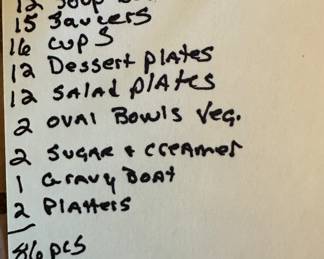 12 Soup
15 Saucers
16 cups
12 Dessert plates
12 Salad plates
2 oval Bowls Veg.
2 Sugar & Creamer
1 Gravy Boat
2 Platters
86 pcs